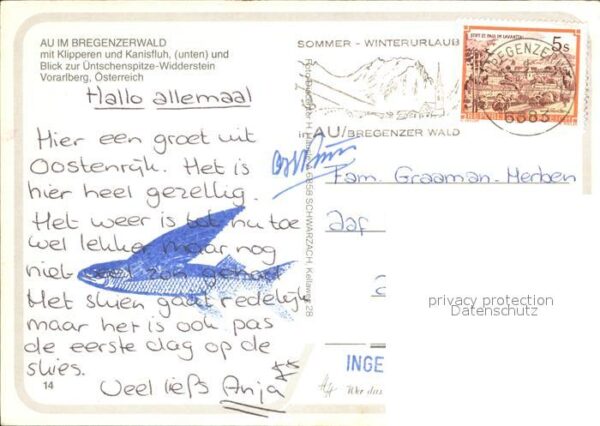 AU IM BREGENZERWALD
mit Klipperen und Kanisfluh, (unten) und
Blick zur Üntschenspitze-Widderstein
Vorarlberg, Österreich
Hallo allemaal
Hier een groet uit
Oostenrijk. Het is
hier heel gezellig.
Het weer is tot nu toe
wel lekker maar nog
niet veel zon gehad.
Met skiën gaat redelijk
maar het is ook pas
de eerste dag op de
skies.
Veel liefs Anja
14
SOMMER - WINTERURLAUB
in AU/BREGENZER WALD
6858 SCHWARZACH, Kellaweg 28
STIFT ST. PAUL IM LAVANTTAL
5s
REPUBLIK
BREGENZER
6883
Fam. Graaman-Merben
Jaf
privacy protection
Datenschutz
INGE
Wer das